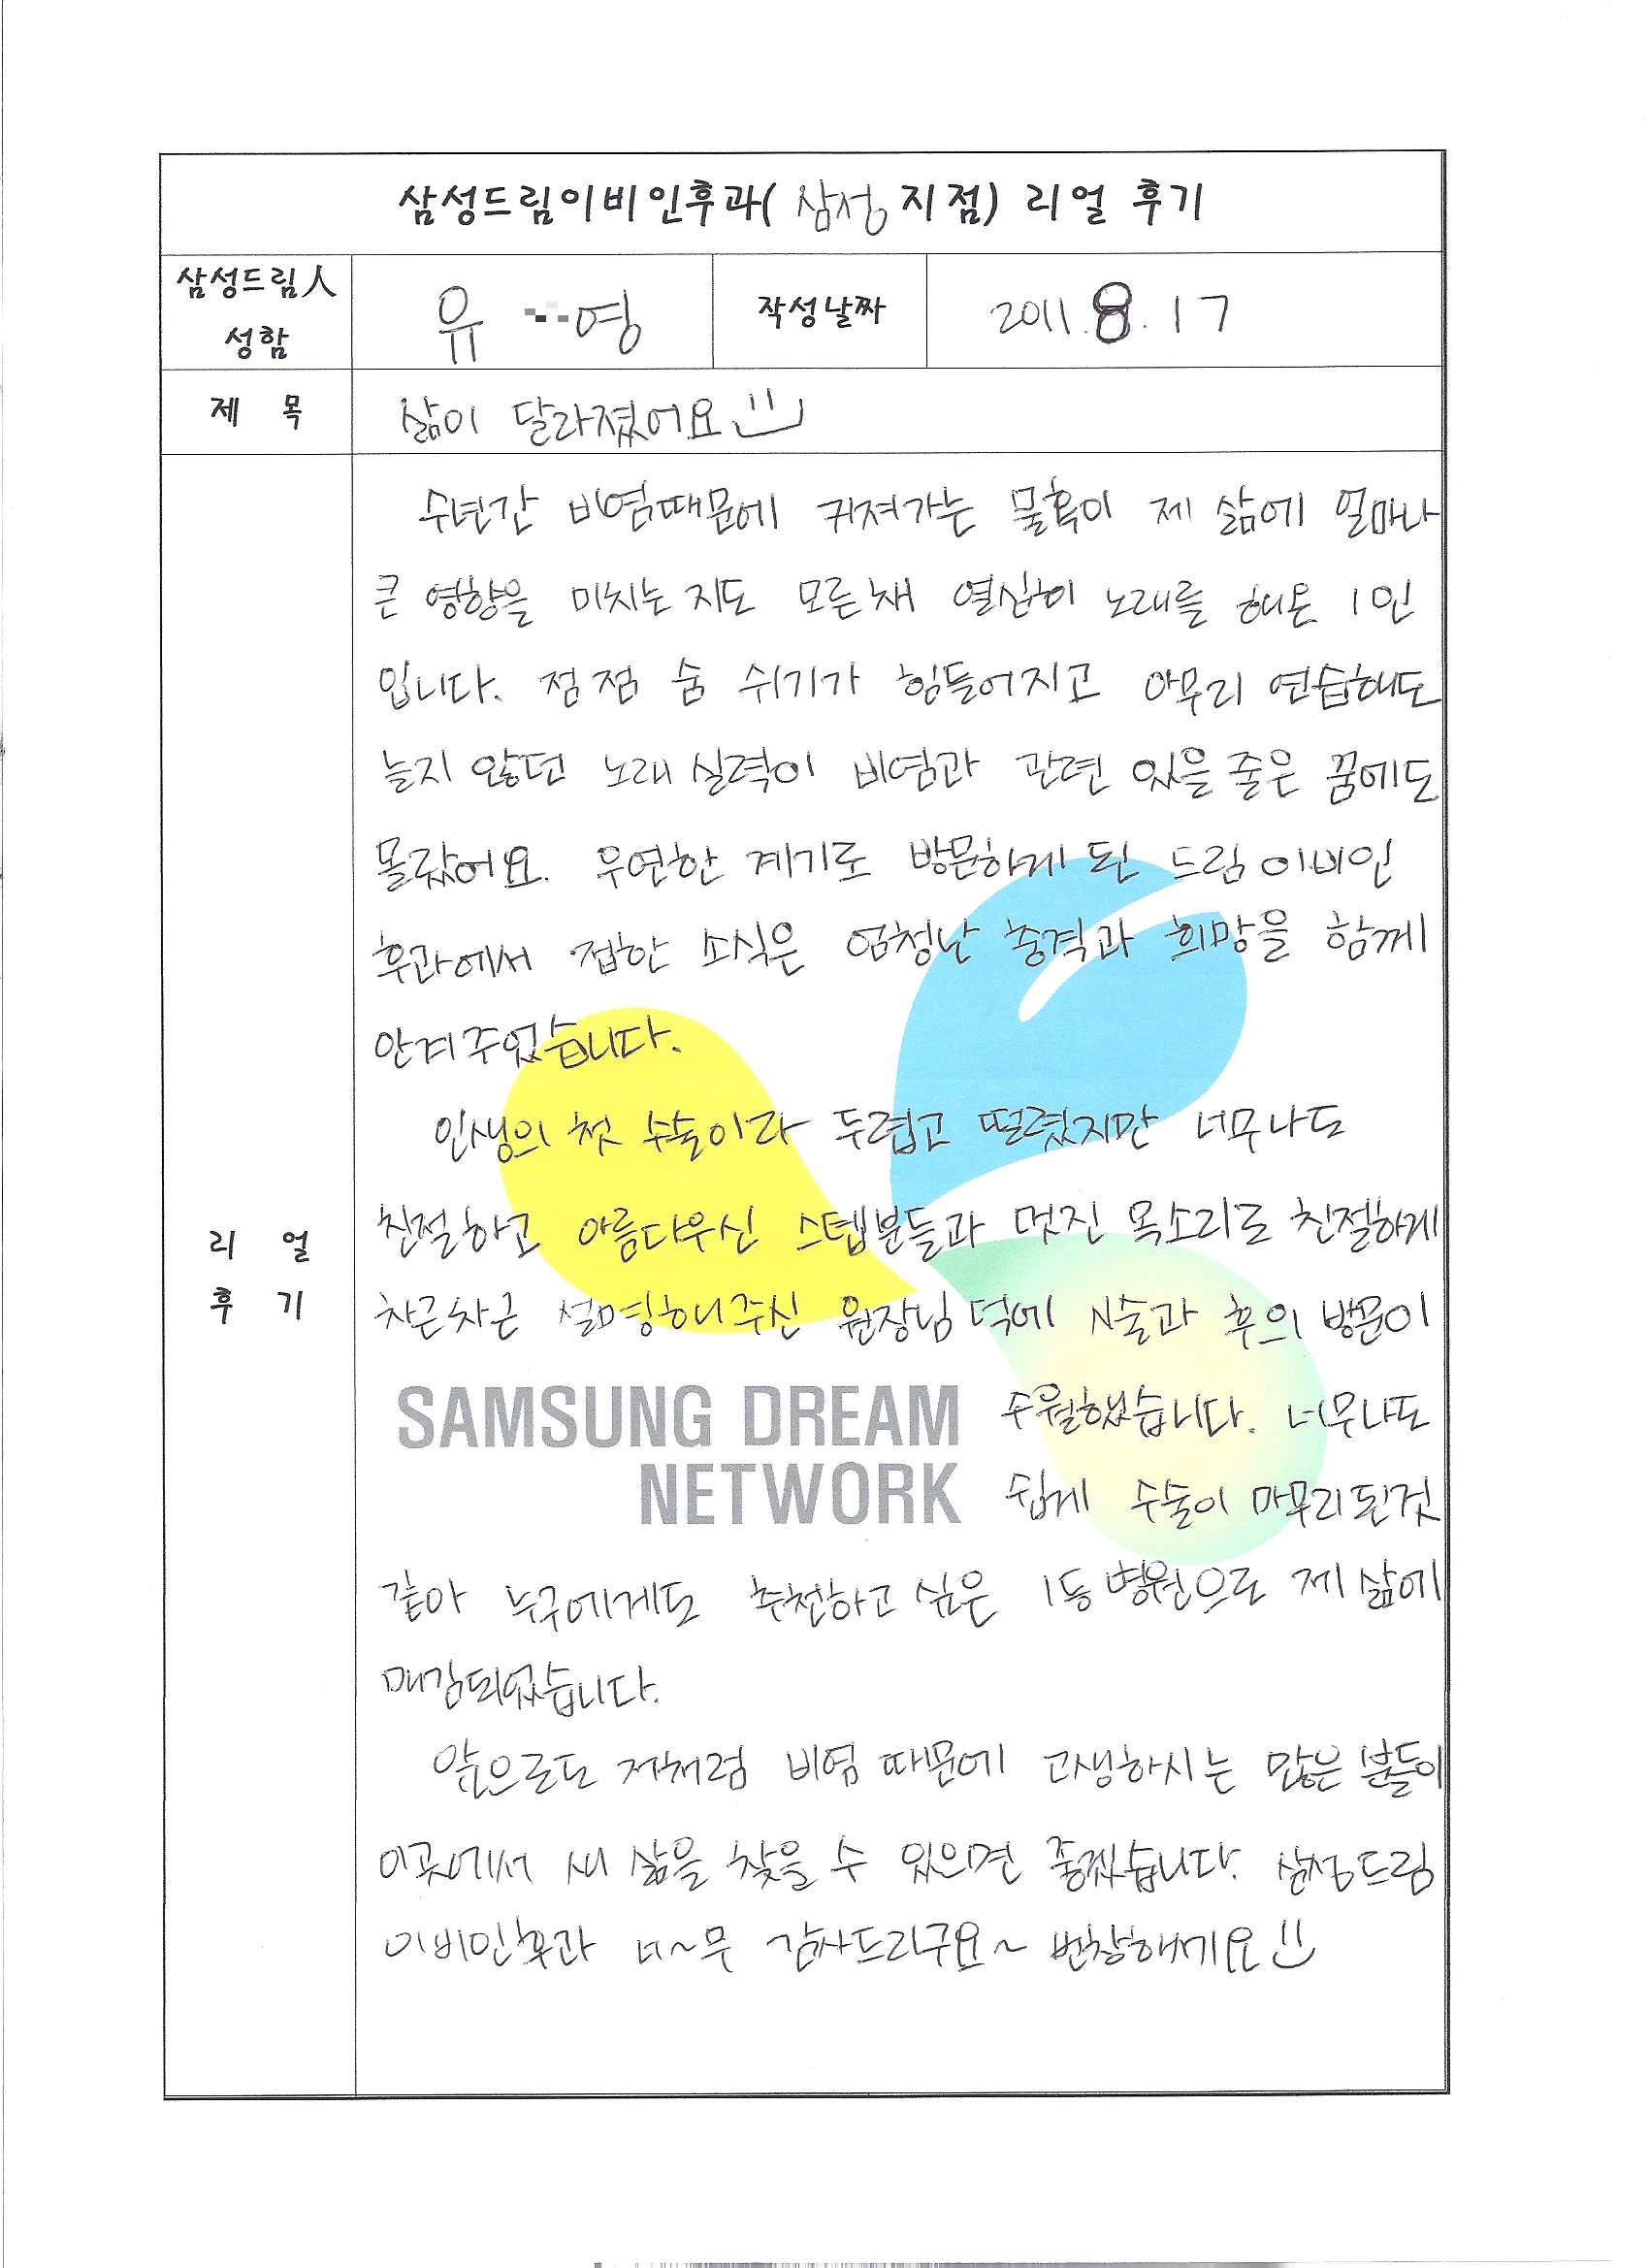 삼성드림이비인후과( 삼성 지점) 리얼 후기
삼성드림人
성함
유 영
작성날짜
2011. 8. 17
제 목
삶이 달라졌어요
수년간 비염때문에 커져가는 물혹이 제 삶에 얼마나
큰 영향을 미치는 지도 모른채 열심히 노래를 해온 1인
입니다. 점점 숨 쉬기가 힘들어지고 아무리 연습해도
늘지 않던 노래 실력이 비염과 관련 있을 줄은 꿈에도
몰랐어요. 우연한 계기로 방문하게 된 드림 이비인
후과에서 접한 소식은 엄청난 충격과 희망을 함께
안겨주었습니다.
인생의 첫 수술이라 두렵고 떨렸지만 너무나도
친절하고 아름다우신 스텝분들과 멋진 목소리로 친절하게
리 얼
후 기
차근차근 설명해주신 원장님 덕에 수술과 후의 방문이
SAMSUNG DREAM
수월했습니다. 너무나도
NETWORK
쉽게 수술이 마무리된것
같아 누구에게도 추천하고 싶은 1등 병원으로 제 삶에
매김되었습니다.
앞으로도 저처럼 비염 때문에 고생하시는 많은 분들이
이곳에서 새 삶을 찾을 수 있으면 좋겠습니다. 삼성드림
이비인후과 너~무 감사드리구요~ 번창하세요